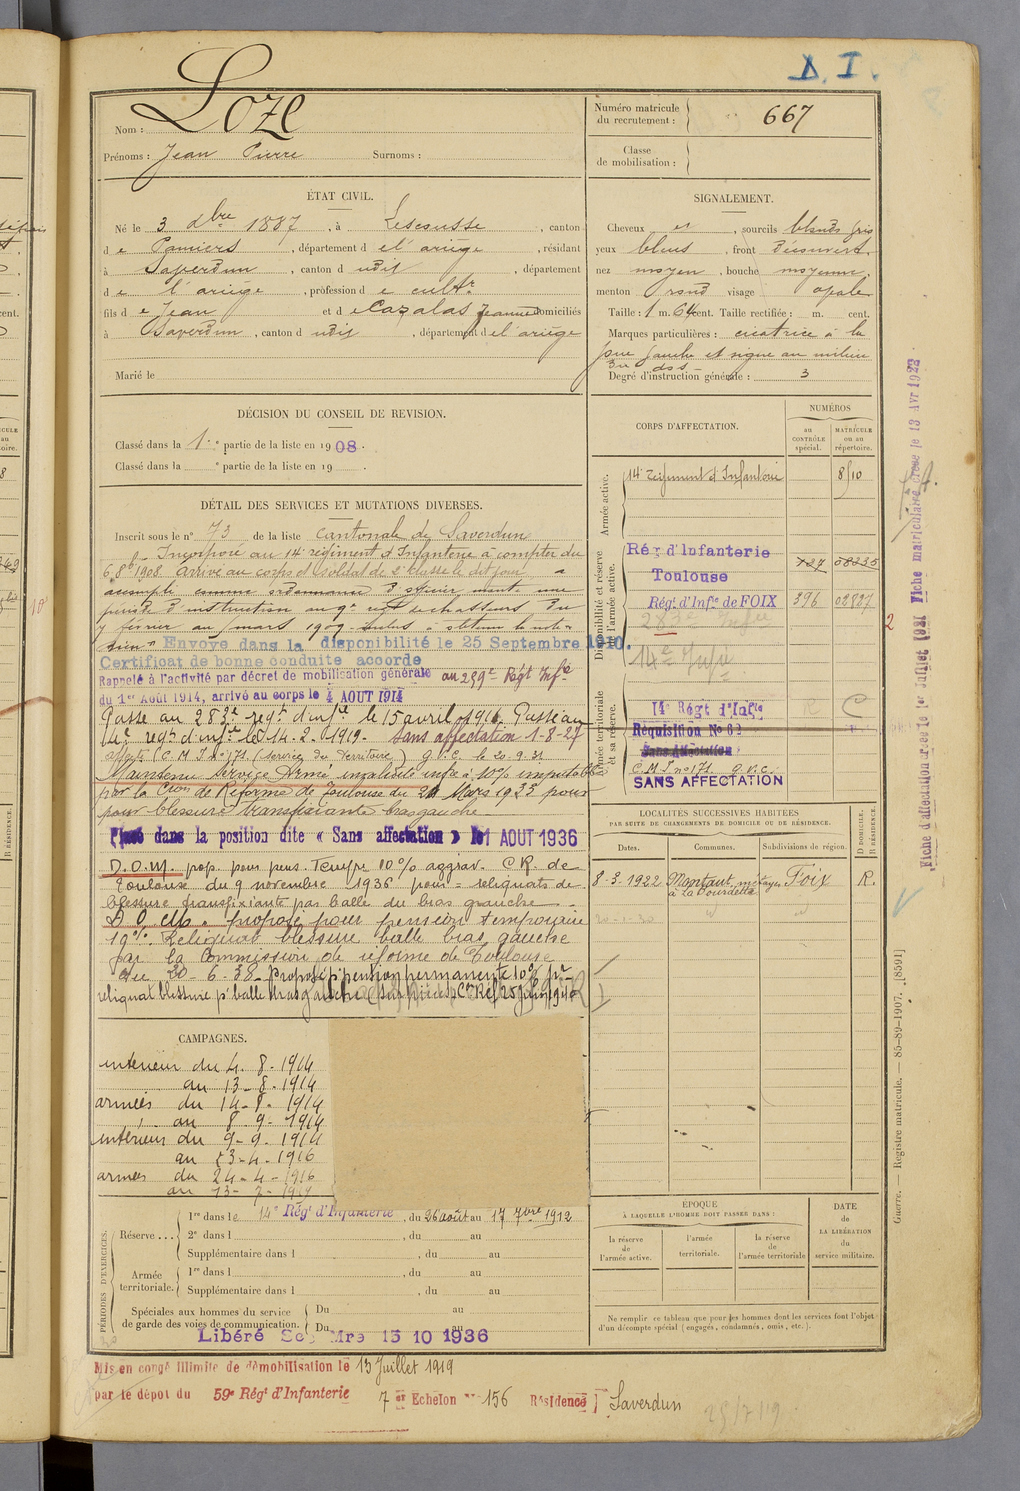 D. I.
Nom : Loze
Prénoms : Jean Pierre Surnoms :
Numéro matricule du recrutement : 667
Classe de mobilisation :
ÉTAT CIVIL.
Né le 3 dbre 1887, à Lescousse, canton
de Pamiers, département de l'ariège, résidant
à Saverdun, canton dudit, département
de l'ariège, profession de cultr
fils de Jean et de Cazalas Jeanne domiciliés
à Saverdun, canton dudit, département de l'ariège
Marié le
SIGNALEMENT.
Cheveux et, sourcils blonds gris
yeux bleus, front découvert,
nez moyen, bouche moyenne,
menton rond visage opale
Taille : 1 m. 64 cent. Taille rectifiée : m. cent.
Marques particulières : cicatrice à la
joue gauche et signe au milieu
du dos
Degré d'instruction générale : 3
DÉCISION DU CONSEIL DE REVISION.
Classé dans la 1re partie de la liste en 1908.
Classé dans la e partie de la liste en 19 .
DÉTAIL DES SERVICES ET MUTATIONS DIVERSES.
Inscrit sous le n° 73 de la liste cantonale de Saverdun
Incorporé au 14e régiment d'Infanterie à compter du
6 8bre 1908. Arrivé au corps et soldat de 2e classe le dit jour a
accompli comme ordonnance d'officier monté une
période d'instruction au 9e regt de chasseurs du
février au mars 1909
Envoyé dans la disponibilité le 25 Septembre 1910.
Certificat de bonne conduite accordé
Rappelé à l'activité par décret de mobilisation générale au 259e Régt Infie
du 1er Août 1914, arrivé au corps le 4 AOUT 1914
Passé au 283e regt d'infie le 15 avril 1916. Passé au
14e regt d'infie le 14-2-1919. Sans affectation 1-8-27
affecté C.M.I. n° 171 (service du Territoire) G.V.C. le 20-9-31
Maintenu service Armé invalidité infre à 10% imputable
par la Cion de Réforme de Toulouse du 21 Mars 1933 pour
pour blessure transfixiante bras gauche
Placé dans la position dite « Sans affectation » le 1 AOUT 1936
D.O.M. prop. pour pens. Tempre 10% aggrav. C.R. de
Toulouse du 9 novembre 1936 pour = reliquats de
blessure transfixiante par balle du bras gauche.
D.O.M. proposé pour pension temporaire
10%. Reliquat blessure balle bras gauche
par la Commission de réforme de Toulouse
du 30-6-38. Proposé p' pension permanente 10% pr
reliquat blessure pr balle bras gauche (sur pièces) Con Réf 25 juin 1940
CORPS D'AFFECTATION.
NUMÉROS
au CONTRÔLE spécial.
MATRICULE ou au répertoire.
Armée active.
14e régiment d'Infanterie 8510
Disponibilité et réserve de l'armée active.
Rég d'Infanterie Toulouse 727 08235
Régt. d'Infie de FOIX 396 02827
283e Infie
14e Infie
Armée territoriale et sa réserve.
14e Régt d'Infie
Réquisition No 62
Sans Affectation
C.M.I. n° 171 G.V.C.
SANS AFFECTATION
C
LOCALITÉS SUCCESSIVES HABITÉES
PAR SUITE DE CHANGEMENTS DE DOMICILE OU DE RÉSIDENCE.
Dates. Communes. Subdivisions de région. D DOMICILE. R RÉSIDENCE.
8-3-1922 Montaut métayer à La Bourdette Foix R.
id id
CAMPAGNES.
intérieur du 4.8.1914
au 13-8-1914
armées du 14-8-1914
au 8.9-1914
intérieur du 9-9-1914
au 23-4-1916
armées du 24-4-1916
au 13-7-1919
PÉRIODES D'EXERCICES.
Réserve ... 1re dans le 14e Régt d'Infanterie, du 26 août au 17 7bre 1912
2e dans l , du au
Supplémentaire dans l , du au
Armée territoriale. 1re dans l , du au
Supplémentaire dans l , du au
Spéciales aux hommes du service de garde des voies de communication. Du au
Du au
Libéré Sce Mre 15 10 1936
ÉPOQUE
À LAQUELLE L'HOMME DOIT PASSER DANS :
la réserve de l'armée active.
l'armée territoriale.
la réserve de l'armée territoriale
DATE de LA LIBÉRATION du service militaire.
Ne remplir ce tableau que pour les hommes dont les services font l'objet
d'un décompte spécial (engagés, condamnés, omis, etc.).
Mis en congé illimité de démobilisation le 13 Juillet 1919
par le dépôt du 59e Régt d'Infanterie 7 er Echelon n° 156 Résidence Saverdun
25/7/19
Fiche d'affectation créée le 1er Juillet 1927 Fiche matriculaire créée le 13 Avr 1922
Guerre. — Registre matricule. — 85-89-1907. [8591]